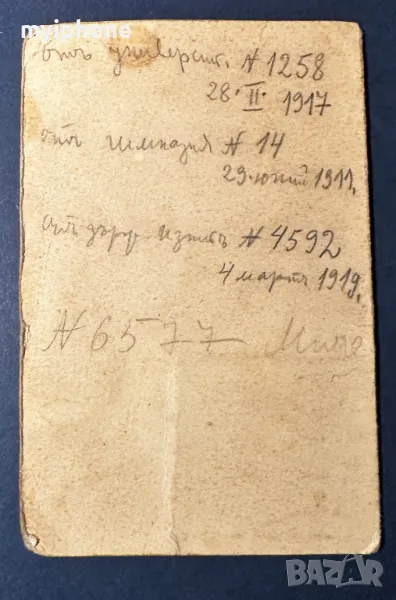 myiphone
отъ университ. N 1258
28. II. 1917
отъ гимназия N 14
29-юний 1911.
отъ държ изпитъ N 4592
4 мартъ 1919.
N 6577
BAZAR